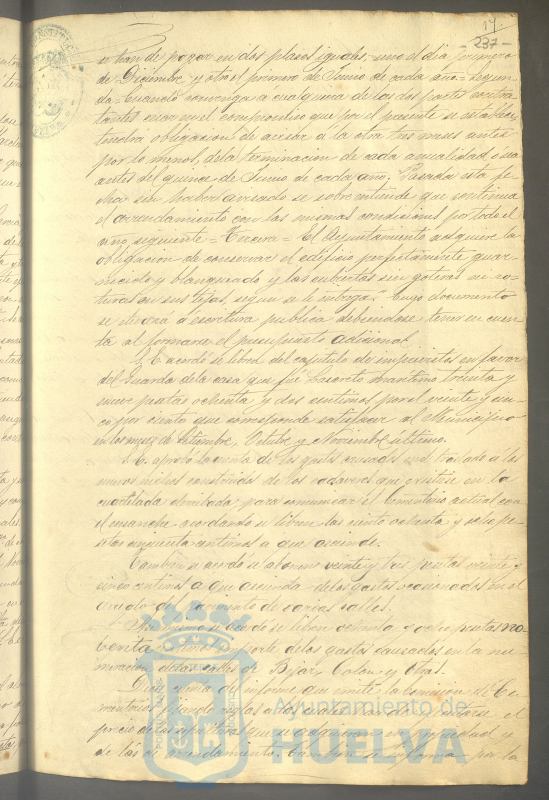 19.
- 237 -
se han de pagar en dos plazos iguales, uno el dia primero
de Diciembre y otro el primero de Junio de cada año = Segun-
da = Cuando convenga á cualquiera de las dos partes contra-
tantes cesar en el compromiso que por el presente se establece,
tendrá obligacion de avisar á la otra tres meses antes
por lo menos, de la terminacion de cada anualidad, ó sea
antes del quince de Junio de cada año. Pasada esta fe-
cha sin haber avisado se sobre entiende que continua
el arrendamiento con las mismas condiciones por todo el
año siguiente = Tercera = El Ayuntamiento adquiere la
obligacion de conservar el edificio perfectamente guar-
necido y blanqueado y las cubiertas sin goteras ni ro-
turas en sus tejas, segun se le entrega." Cuyo documento
se elevará á escritura publica debiendose tener en cuen-
ta al formarse el presupuesto adicional.
Se acordó se libren del capitulo de imprevistos en favor
del Guarda de la casa que fué Lazareto maritimo treinta y
nueve pesetas ochenta y dos centimos para el veinte y cin-
co por ciento que corresponde satisfacer al Municipio
en los meses de Setiembre, Octubre y Noviembre ultimo.
Se aprobó la cuenta de los gastos causados en el traslado a los
nuevos nichos construidos de los cadaveres que existian en la
cuartelada derribada para comunicar el Cementerio actual con
el ensanche acordando se libren las ciento ochenta y seis pe-
setas cincuenta centimos a que asciende.
Tambien se acordó se abonen veinte y tres pesetas veinte y
cinco centimos a que ascienden los gastos ocasionados en el
arreglo de pavimento de varias calles.
Asi mismo se acordó se libren ochenta y ocho pesetas no-
venta centimos importe de los gastos causados en la nu-
meracion de las calles de Bejar, Colon y otras.
Diose cuenta del informe que emite la Comision de Ce-
menterios
precio de las sepulturas que se adquieran en propiedad y
de las de arrendamiento. por la
Ayuntamiento de
HUELVA